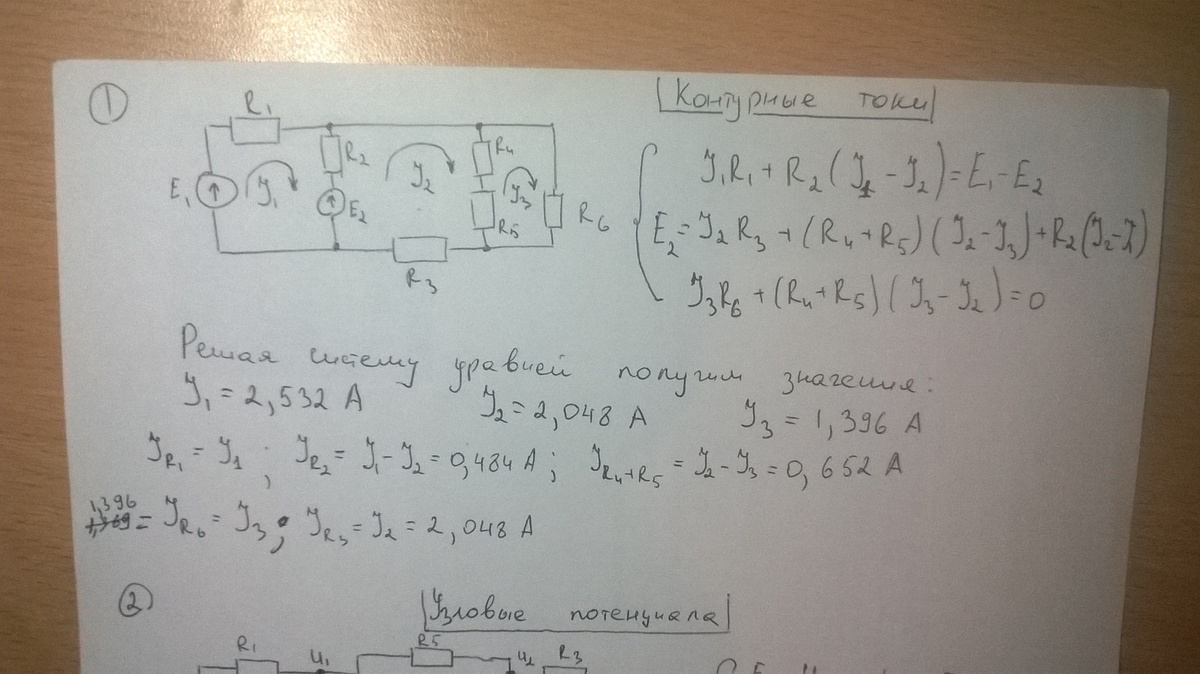 ①
Контурные токи
R₁
R₂
R₄
E₁
J₁
J₂
J₃
E₂
R₅
R₆
R₃
J₁R₁ + R₂(J₁ - J₂) = E₁ - E₂
E₂ = J₂R₃ + (R₄ + R₅)(J₂ - J₃) + R₂(J₂ - J₁)
J₃R₆ + (R₄ + R₅)(J₃ - J₂) = 0
Решая систему уравней получим значения:
J₁ = 2,532 А J₂ = 2,048 А J₃ = 1,396 А
J_R₁ = J₁ ; J_R₂ = J₁ - J₂ = 0,484 А ; J_R₄+R₅ = J₂ - J₃ = 0,652 А
1,396 = J_R₆ = J₃ ; J_R₃ = J₂ = 2,048 А
②
Узловые потенциала
R₁ U₁ R₅ U₂ R₃